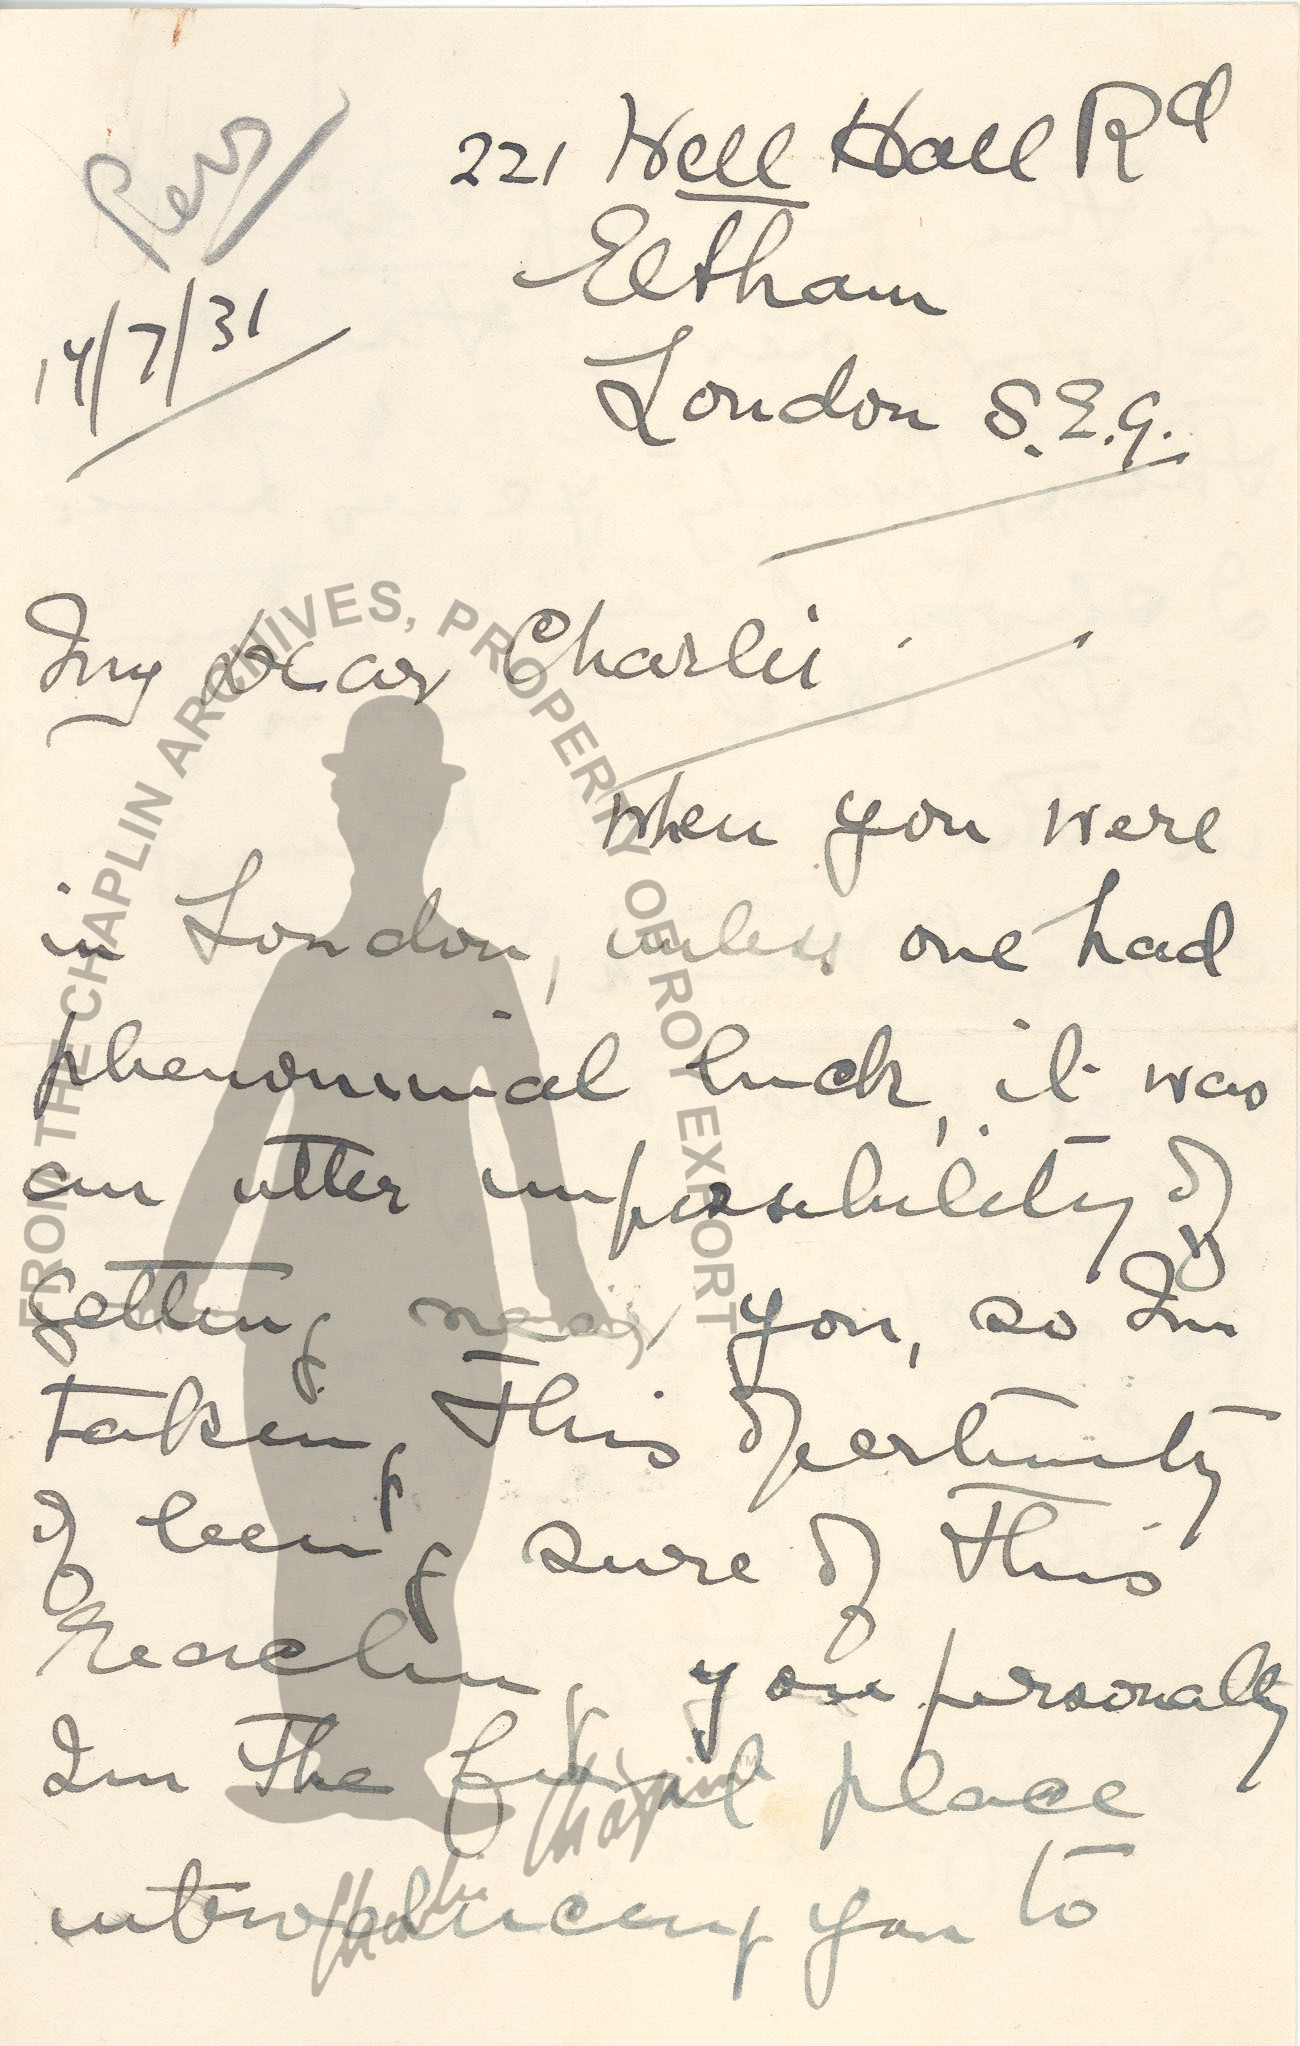 Pers
221 Well Hall Rd
Eltham
14/7/31
London S.E.9.
My dear Charlie
When you were
in London, unless one had
phenominal luck, it was
an utter impossibility of
getting near you, so Im
taking this oppertunity
of being sure of this
reaching you personally
Im the first place
introducing you to
FROM THE CHAPLIN ARCHIVES, PROPERTY OF ROY EXPORT
Charlie Chaplin™